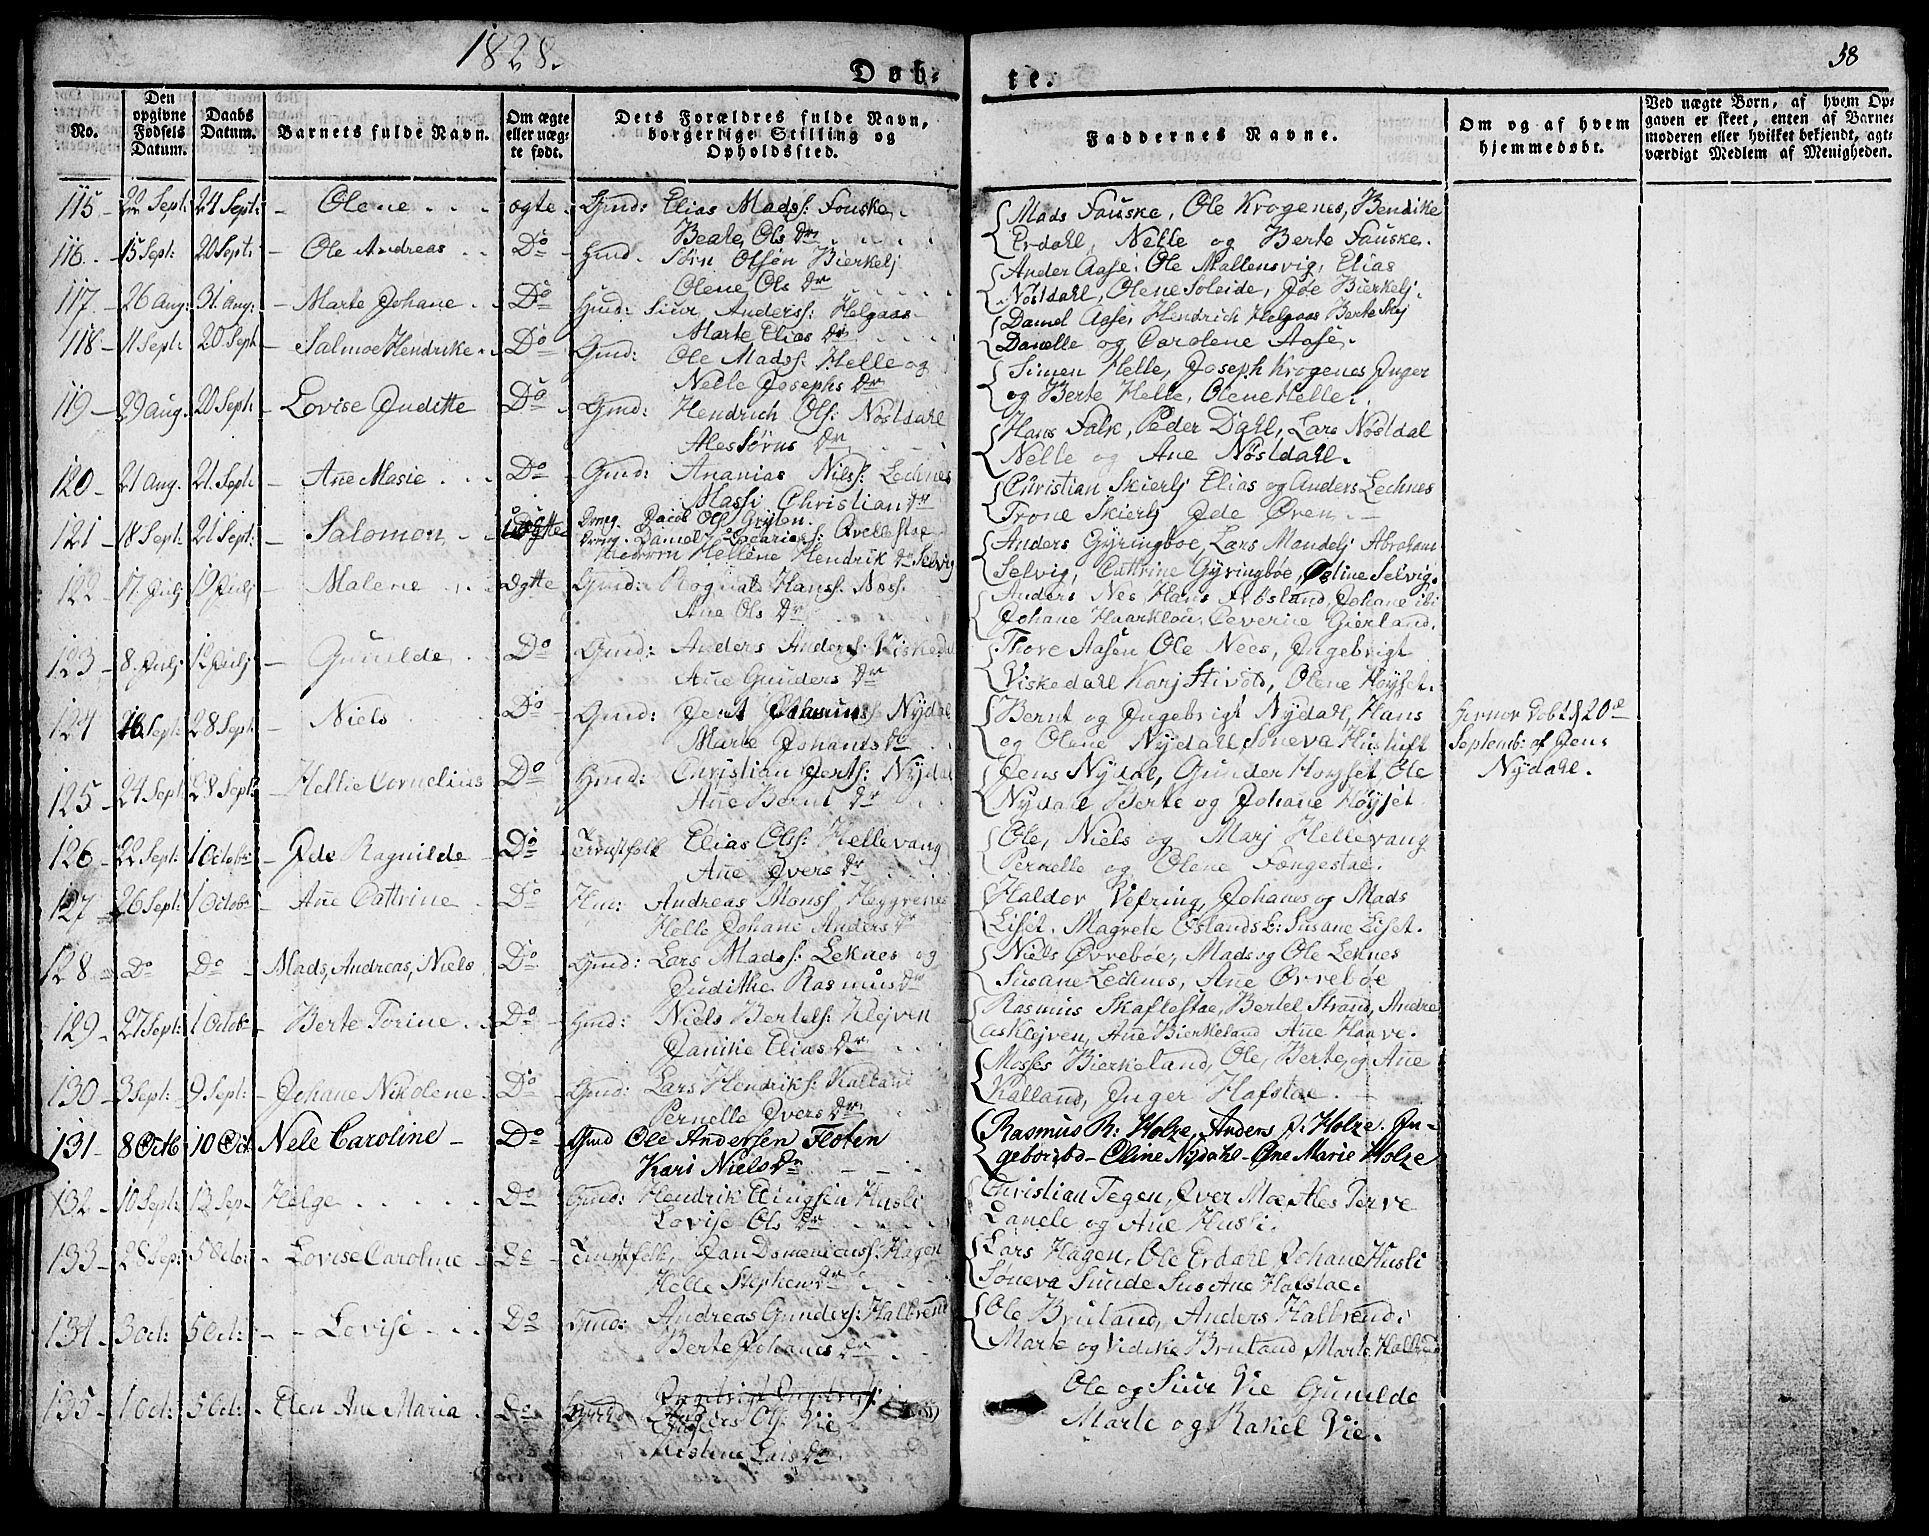 1828.
58
Døb-
te.
No.
Den opgivne Fødsels Datum.
Daabs Datum.
Barnets fulde Navn.
Om ægte eller uægte født.
Dets Forældres fulde Navn, borgerlige Stilling og Opholdssted.
Faddernes Navne.
Om og af hvem hjemmedøbt.
Ved uægte Børn, af hvem Opgaven er skeet, enten af Barnemoderen eller hvilket bekjendt, agtværdigt Medlem af Menigheden.
115 - 22 Sept: 24 Sept: - Olene ægte Gmd: Elias Madss: Fouske
Beate Ols Dr
Mads Fauske, Ole Krogenes, Bendike
Erdahl, Nelle og Berte Fauske.
116. - 15 Sept: 20 Sept: - Ole Andreas Do Hmd. Sørn Olsøn Bierkelj
Olene Ols Dr
Ander Aase, Ole Mallensvig, Elias
Nöstdahl, Olene Soleide, Joe Bierkelj.
117. - 26 Aug: 31 Aug: - Marte Johane Do Hmd: Siur Anderss: Helgaas
Marte Elias Dr
Daniel Aase, Hendrich Helgaas Berte Skej
Danelle og Carolene Aase.
118 - 11 Sept: 20 Sept - Salmoe Hendrike Do Gmd: Ole Madss: Helle og
Nelle Josephs Dr
Simen Helle, Joseph Krogenes Inger
og Berte Helle, Olene Helle.
119 - 29 Aug. 20 Sept: - Lovise Juditte Do Gmd: Hendrich Ols: Nöstdahl
Ales Sørns Dr
Hans Falk, Peder Dahl, Lars Nöstdal
Nelle og Ane Nöstdahl.
120 - 21 Aug. 21. Sept: - Añe Masie Do Gmd: Ananias Nilss: Lechnes
Massi Christian Dr
Christian Skierlj Elias og Anders Lechnes
Trone Skierlj Jde Øren.
121 - 18 Sept: 21 Sept: - Salomon uægte Drng. Jacob Ols: Gryten.
Hellene Hendrik Dr Selvig
Anders Gyringboe, Lars Mandelj Abraham
Selvig, Cattrine Gyringbøe, Oline Selvig.
122 - 17. Julj 19 Julj - Malene Ægtte Gmd: Rognald Hanss: Næss.
Ane Ols Dr
Anders Nes, Hans Johane ibi
Johane Haarklou, Ceverine Gierland.
123 - 8. Julj 12 Julj - Gunilde Do Gmd: Anders Anders: Viskedal
Añe Gunders Dr
Thore Aasen Ole Nees, Ingebrigt
Viskedahl Karj Stivots, Olene Höyset.
124 Sept: 28 Sept: - Niels Do Gmd: Nÿdal
Marte Johanes Dr
Bernt og Ingebrigt Nÿdahl, Hans
og Olene Nÿdahl Søneva Hustuft
Hiemdöbt d 20de
Septemb: af Jens
Nÿdahl.
125 - 24 Sept 28 Sept - Hellie Cornelius Do Hmd: Christian Jerts: Nÿdal
Añe Bernt Dr
Jens Nÿdal, Gunder Höyset, Ole
Nÿdahl Berte og Johañe Höyset
126 - 22 Sept: 1 Octobr - Jde Ragnilde Do Tienistfolk Elias Ols: Hellevang
Añe Jvers Dr
Ole, Niels og Marj Hellevang
Pernelle og Olene Fængestae.
127 - 26 Sept: 1 Octobr - Añe Cattrine Do Hm: Andreas Monss: Heggrenes
Helle Johane Anders Dr
Haldor Vefring, Johanes og Mads
Liset. Magrete Östands E: Susane Liset.
128 - Do Do - Mads, Andreas, Niels Do Gmd: Lars Madss: Leknes og
Judithe Rasmus Dr
Niels Øvrebøe, Mads og Ole Leknes
Susane Lechnes, Ane Ørrebøe
129 - 27 Sept: 1 Octobr - Berte Torine Do Hmd: Niels Bertels: Klejven
Janike Elias Dr
Rasmus Skaftestae, Bertel Strand, Andre
as Klejven, Añe Bierkeland Añe Haave.
130 - 3 Sept: 9 Sept: - Johane Nikolene Do Gmd: Lars Hendriks: Kalland
Pernelle Jvers Dr
Mosses Bierkeland, Ole, Berte, og Añe
Kalland, Inger Hafstae.
131 - 8 Octb 10 Oct Nele Caroline - Do Gmd Ole Andersen Floten
Kari Niels Dr
Rasmus R: Holze, Anders J: Holze. In-
gebor ibd - Oline Nÿdahl - Ane Marie Holze
132 - 10 Sept: 13 Sep - Helge Do Gmd: Hendrik Elingsen Husli
Lovise Ols Dr
Christian Tegen, Jver Moe Ales Terve
Lanele og Ane Husli.
133 - 28 Sep: 5 Octo: - Lovise Caroline Do - Tienistfolk, Jan Domenicuss: Hagen
Helle Stephens Dr
Lars Hagen, Ole Erdahl Johane Husli
Søneva Sunde Susane Hafstae.
134 - 3 Oct: 5 Oct: - Lovise Do Gmd: Andreas Gunders: Halbrend
Berte Johanes Dr
Ole Bruland, Anders Halbrend:
Marte og Vidike Bruland Marte Halbrend
135 - 1 Oct: 5 Oct: - Elen Ane Maria Do
Anders Ols: Vie
Lars Dr
Ole og Siur Vie Gunilde
Marte og Rakel Vie.